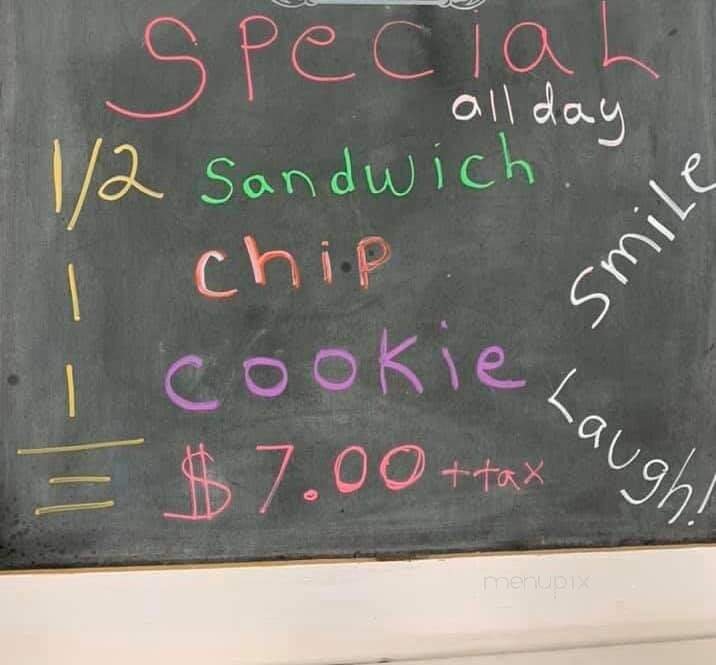 Special
all day
1/2 Sandwich
1 chip
1 cookie
= $7.00 + tax
Smile
Laugh!
menupix